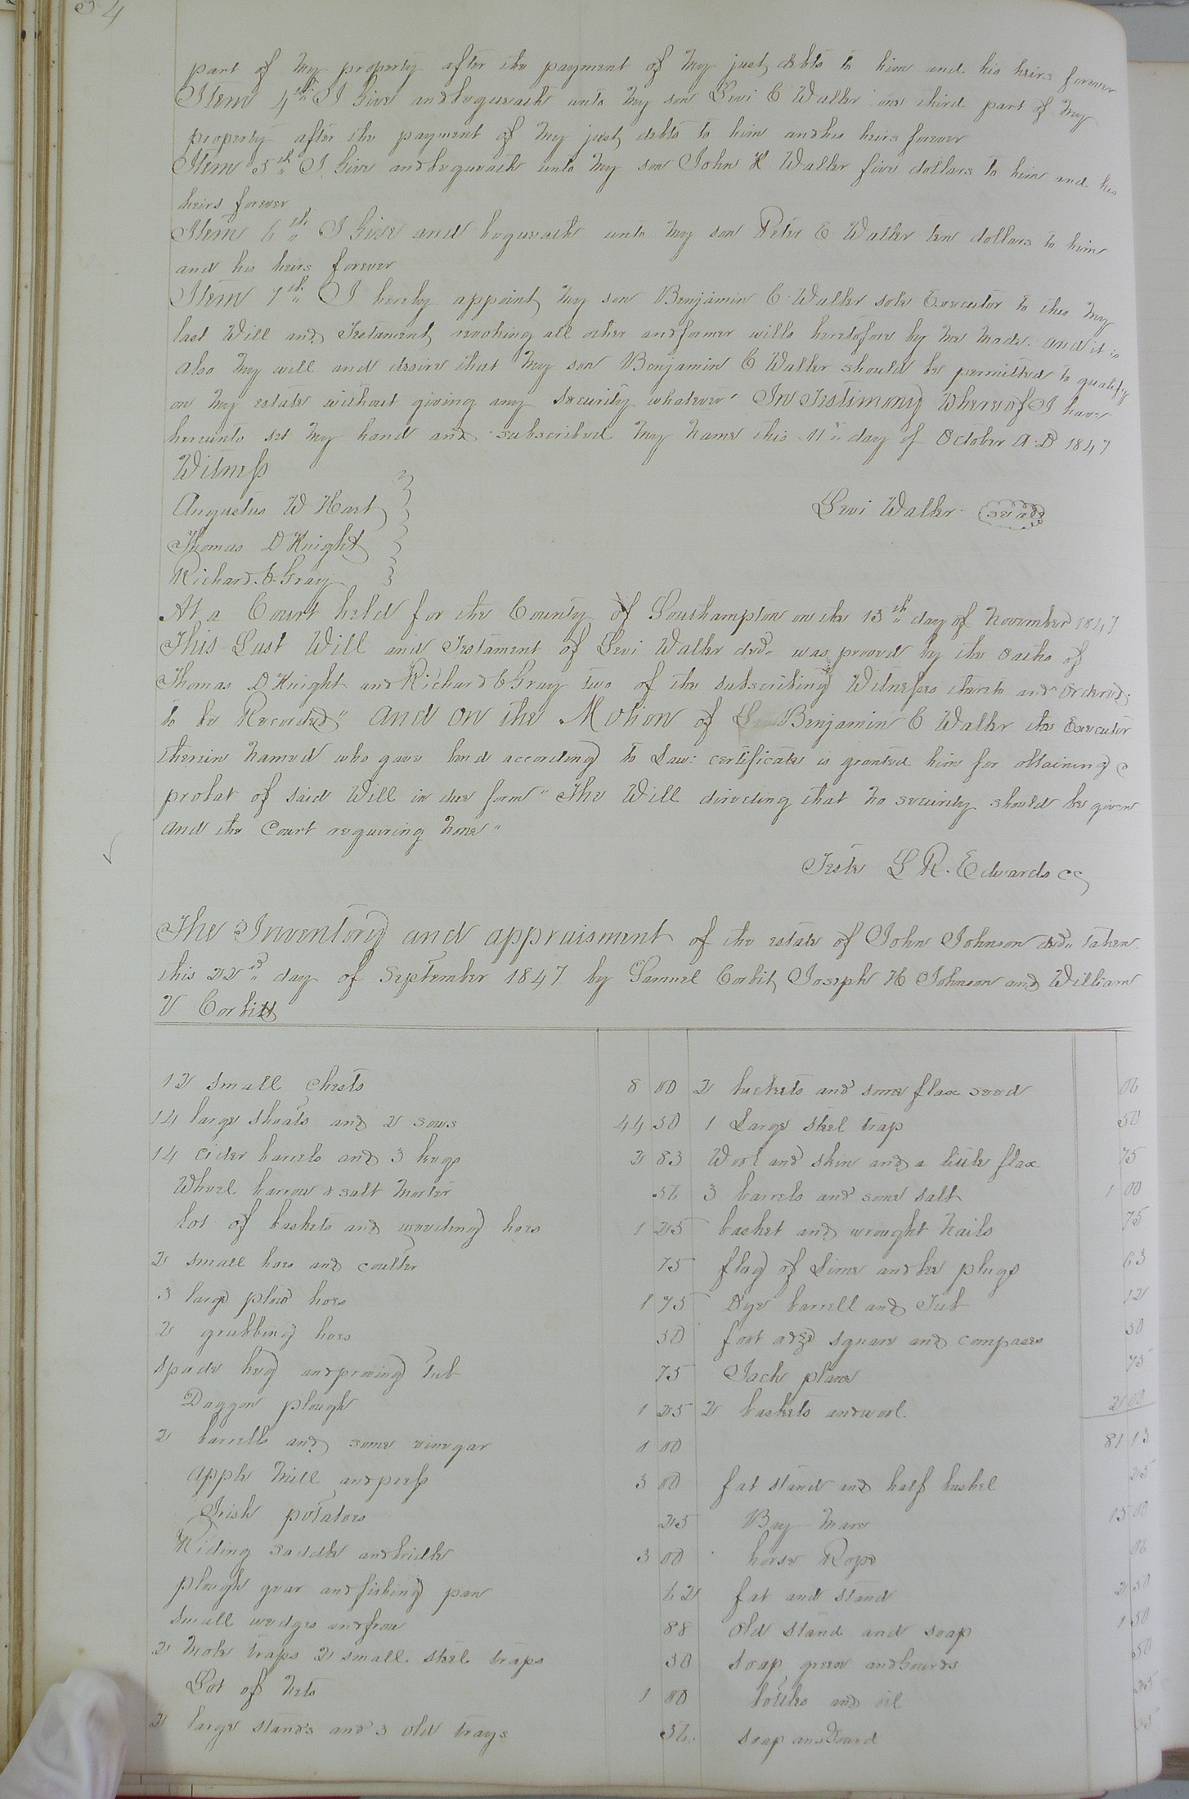 34
part of my property after the payment of my just debts to him and his heirs forever
Item 4th I Give and bequeath unto my son Levi E Waller one third part of my
property after the payment of my just debts to him and his heirs forever
Item 5th I Give and bequeath unto my son John H Waller five dollars to him and his
heirs forever
Item 6th I Give and bequeath unto my son Peter E Waller ten dollars to him
and his heirs forever
Item 7th I hereby appoint my son Benjamin E Waller sole Executor to this my
last Will and Testament revoking all other and former wills heretofore by me made. and it is
also my will and desire that my son Benjamin E Waller should be permitted to qualify
on my estate without giving any security whatever" In Testimony Whereof I have
hereunto set my hand and subscribed my name this 11th day of October A.D 1847
Witness
Augustus W Hart
Levi Waller seal
Thomas D Knight
Richard E Gray
At a Court held for the County of Southampton on the 15th day of November 1847
This Last Will and Testament of Levi Waller decd. was prooved by the oaths of
Thomas D Knight and Richard E Gray two of the subscribing Witnesses thereto and Ordered
to be Recorded" And on the Motion of Benjamin E Waller the Executor
therein named who gave bond according to Law: certificate is granted him for obtaining a
probat of said Will in due form" The Will directing that no security should be given
and the Court requiring none"
Teste L R. Edwards CC
The Inventory and appraisment of the estate of John Johnson decd. taken
this 22nd day of September 1847 by Samuel Corbit, Joseph H Johnson and William
V Corbitt
12 small chests 8 00 2 buckets and some flax seed 06
14 large shoats and 2 sows 44 50 1 Large steel trap 50
14 cider barrels and 3 hogs 2 83 Wool and skin and a little flax 75
Wheel barrow & salt morter 56 3 barrels and some salt 1 00
Lot of baskets and weeding hoes 1 25 basket and wrought nails 75
2 small hoes and coulter 75 flag of Lime and plugs 63
3 large plow hoes 1 75 Dye barrell and Tub 12
2 grubbing hoes 50 foot adze square and compasses 50
spade keg and tub 75 Jack plane 75
Daggon plough 1 25 2 baskets and wool 2 00
2 barrells and some vinegar 1 00 81 13
Apple mill and press 3 00 fat stand and half bushel 25
Irish potatoes 25 Bay Mare 15 00
Riding saddle and bridle 3 00 horse Rope 06
plough gear and fishing pan 62 fat and stand 2 50
small wedges and frow 88 old stand and soap 1 50
2 mole traps 2 small steel traps 50 soap grease and gourds 50
Lot of nets 1 00 bottles and oil 25
2 large stands and 3 old trays 56 soap and Gourd